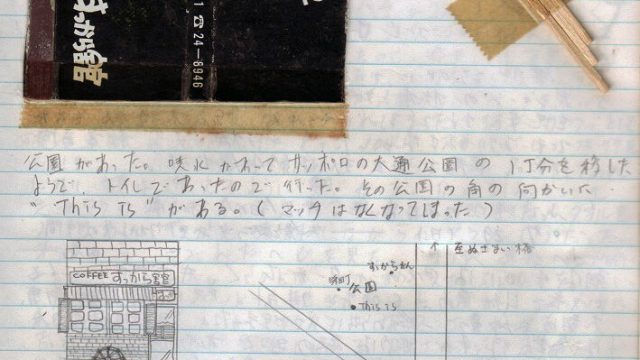 すっから館
☎24-8946
公園があった。噴水があってサッポロの大通公園の1丁分を移した
ようで、トイレであったので行った。その公園の角の向かいに
"This is"がある。(マッチはなくなってしまった)
COFFEE すっから館
至ぬさまい橋
すからかん
栄町 公園
This is